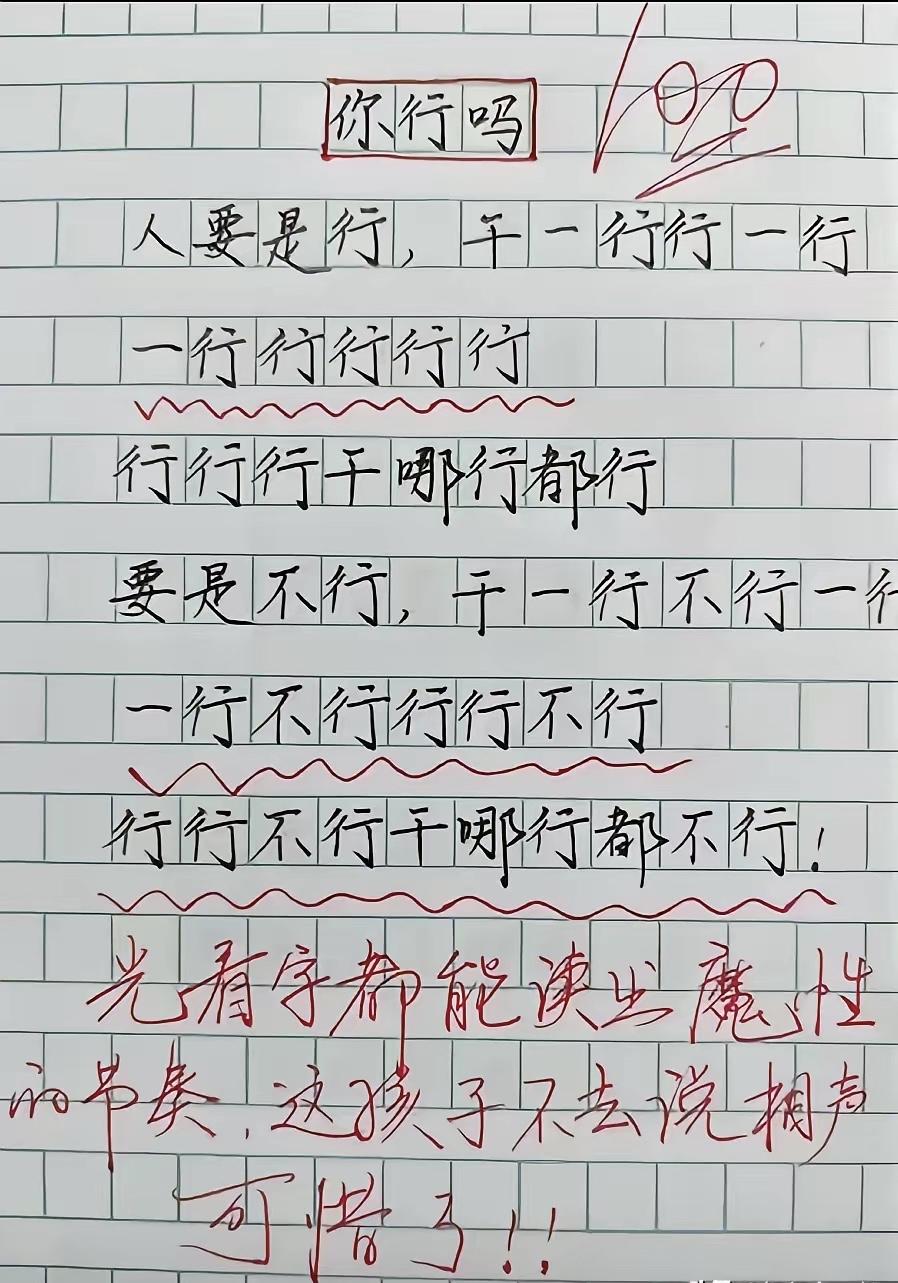 你行吗
100
人要是行，干一行行一行
一行行行行行
行行行干哪行都行
要是不行，干一行不行一行
一行不行行行不行
行行不行干哪行都不行！
光看字都能读出魔性
的节奏，这孩子不去说相声
可惜了！！